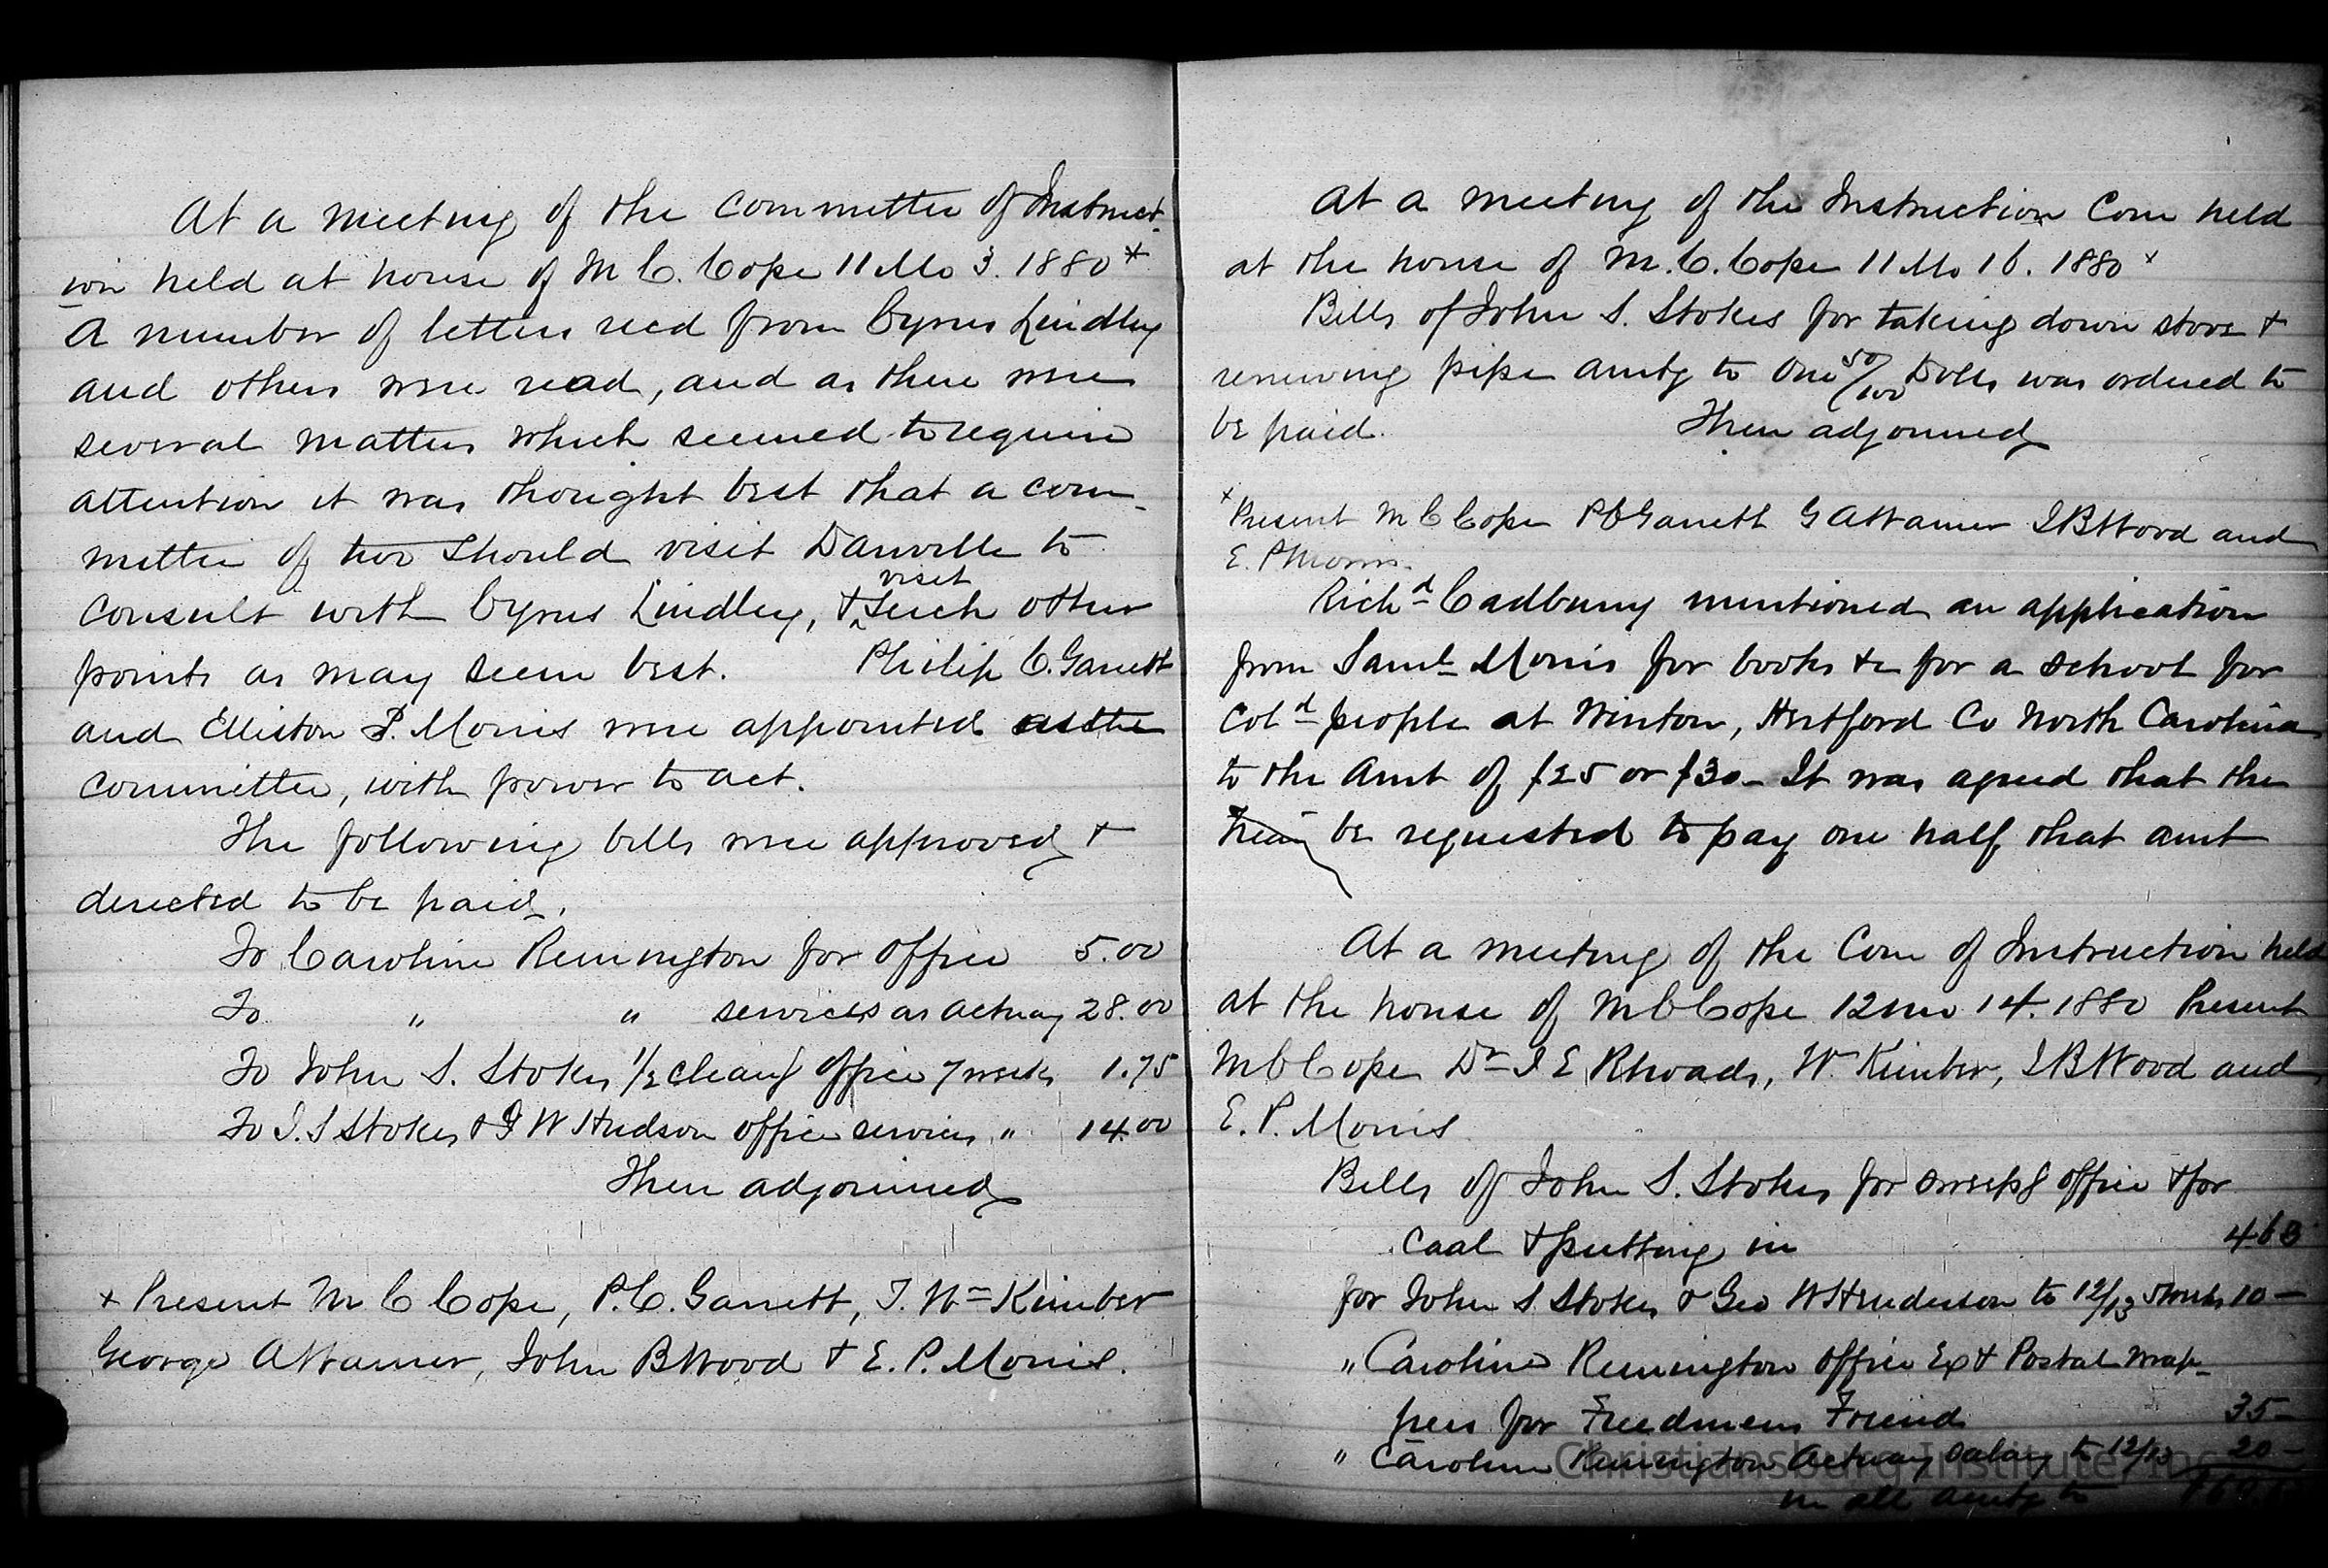 At a meeting of the Committee of Instruct-
ion held at house of M C. Cope 11 Mo 3. 1880 *
A number of letters recd from Cyrus Lindley
and others were read, and as there were
several matters which seemed to require
attention it was thought best that a com-
mittee of two should visit Danville to
consult with Cyrus Lindley, & visit such other
points as may seem best. Philip C. Garrett
and Elliston P. Morris were appointed as the
committee, with power to act.
The following bills were approved &
directed to be paid.
To Caroline Remington for office 5.00
To " " services as actuary 28.00
To John S. Stokes 1/2 cleang office 7 weeks 1.75
To J. S Stokes & G W Hudson office services " 14.00
Then adjourned
x Present M C Cope, P. C. Garrett, T. Wm Kimber
George A Warner, John B Wood & E. P. Morris.
At a meeting of the Instruction Com held
at the house of M. C. Cope 11 Mo 16. 1880 x
Bills of John S. Stokes for taking down stove &
renewing pipe amtg to One 50/100 Dolls was ordered to
be paid. Then adjourned
x Present M C Cope P C Garrett G A Warner J B Wood and
E. P Morris.
Richd Cadbury mentioned an application
from Saml Morris for books &c for a school for
Cold people at Winton, Hertford Co North Carolina
to the amt of $25 or $30 - It was agreed that the
Treas be requested to pay one half that amt
At a meeting of the Com of Instruction held
at the house of M C Cope 12 mo 14. 1880 Present
M C Cope Dr J E Rhoads, Wm Kimber, J B Wood and
E. P. Morris
Bills of John S. Stokes for sweepg office & for
Coal & putting in 4.63
for John S Stokes & Geo W Henderson to 12/13 5 weeks 10 -
" Caroline Remington office Ex & Postal wrap-
pers for Freedmens Friend 35 -
" Caroline Remington Actuary salary to 12/13 20 -
in all amtg to
Christiansburg Institute, Inc.